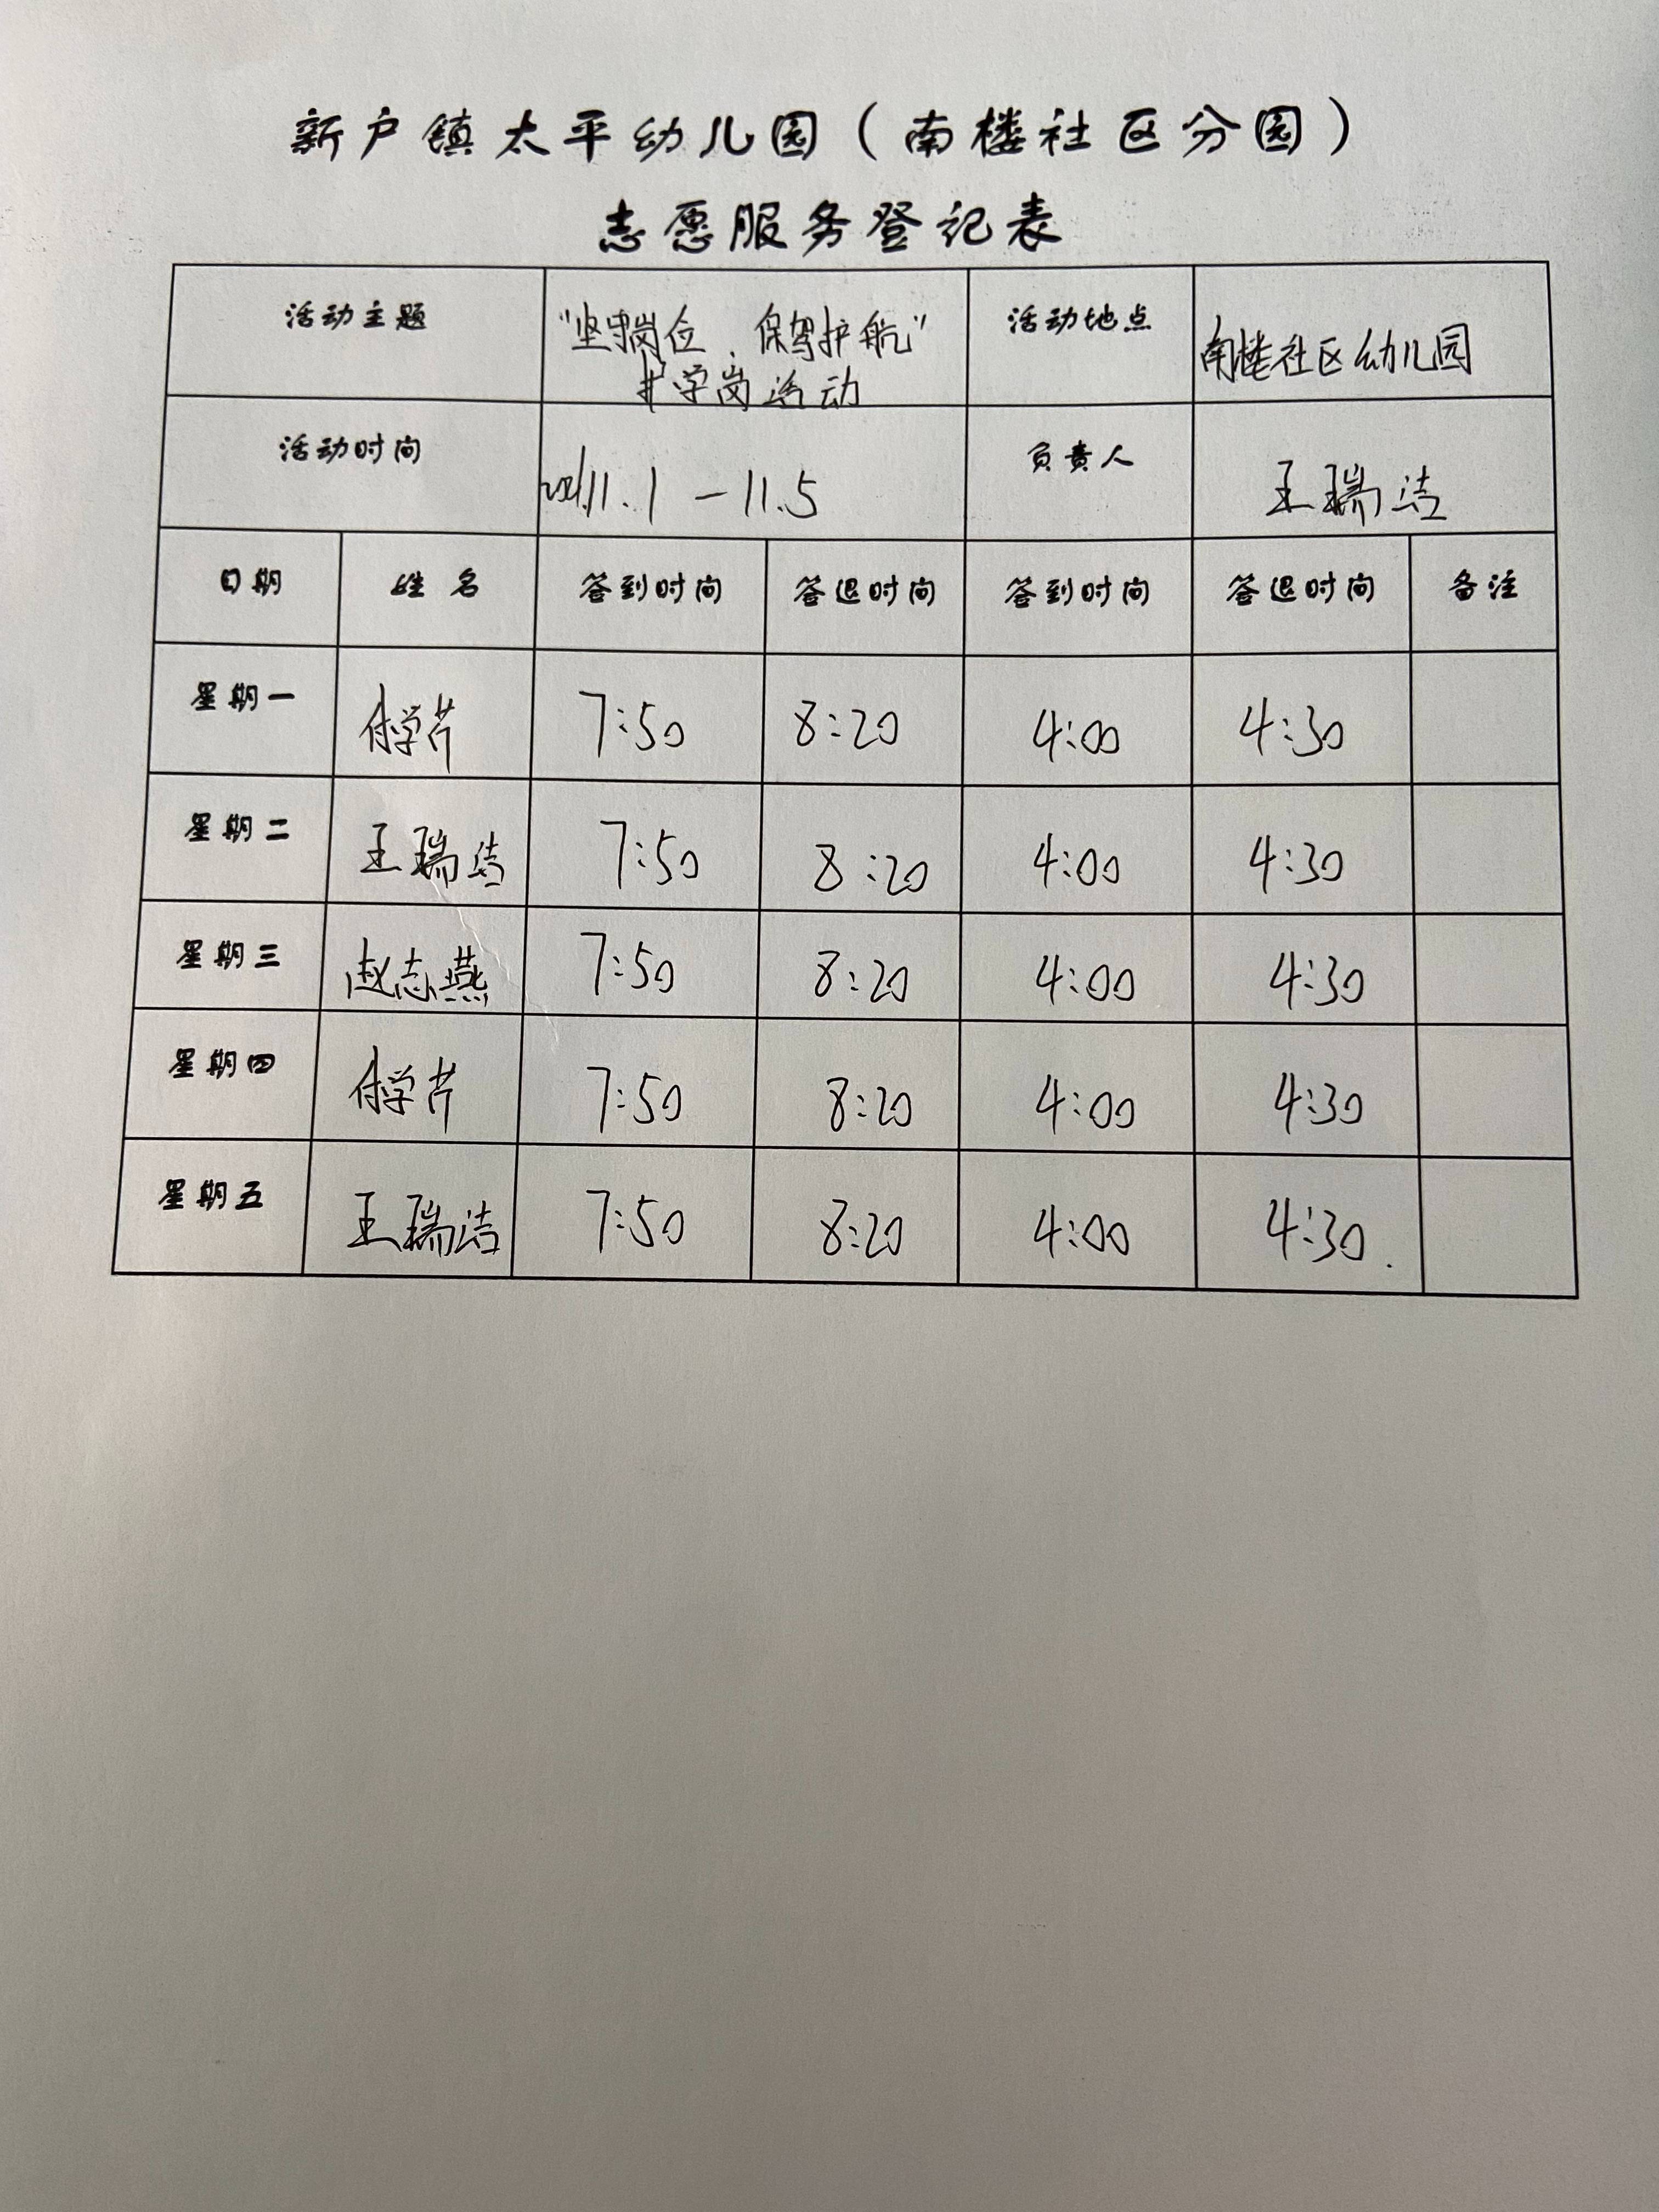 新户镇太平幼儿园（南楼社区分园）
志愿服务登记表
活动主题 "坚守岗位、保驾护航" 活动地点 南楼社区幼儿园
护学岗活动
活动时间 2021.11.1 — 11.5 负责人 王瑞洁
日期 姓名 签到时间 签退时间 签到时间 签退时间 备注
星期一 付学芹 7:50 8:20 4:00 4:30
星期二 王瑞洁 7:50 8:20 4:00 4:30
星期三 赵志燕 7:50 8:20 4:00 4:30
星期四 付学芹 7:50 8:20 4:00 4:30
星期五 王瑞洁 7:50 8:20 4:00 4:30.